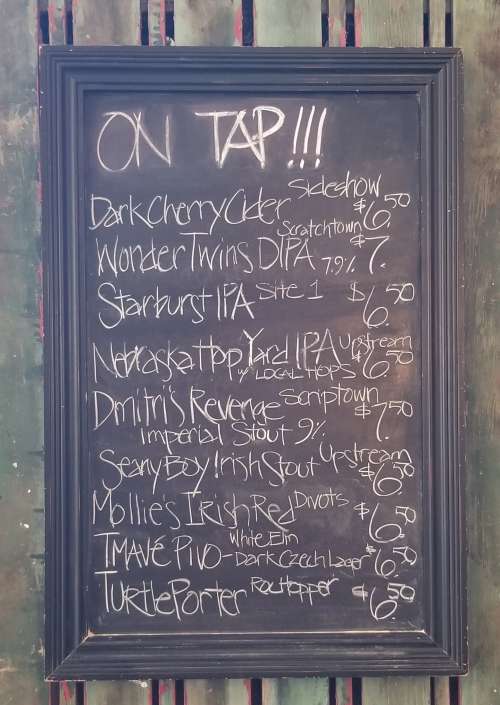 ON TAP!!!
Dark Cherry Cider Sideshow $6.50
Wonder Twins DIPA 7.9% Scratchtown $7.
Starburst IPA Site 1 $6.50
Nebraska Hop Yard IPA Upstream $6.50
w/ LOCAL HOPS
Dmitri's Revenge Scriptown $7.50
Imperial Stout 9%
Seany Boy Irish Stout Upstream $6.50
Mollie's Irish Red Divots $6.50
TMAVÉ PIVO - Dark Czech Lager White Elm $6.50
Turtle Porter RocHopper $6.50